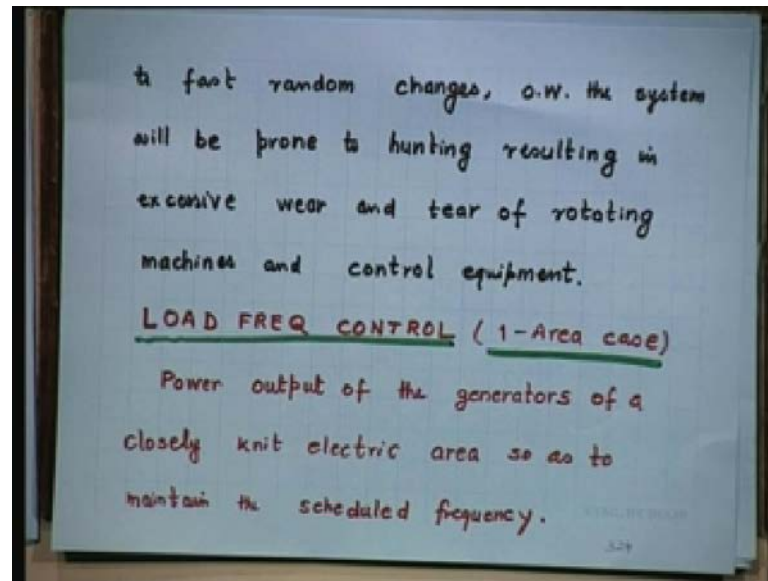 to fast random changes, o.w. the system
will be prone to hunting resulting in
excessive wear and tear of rotating
machines and control equipment.
LOAD FREQ CONTROL (1-Area case)
Power output of the generators of a
closely knit electric area so as to
maintain the scheduled frequency.